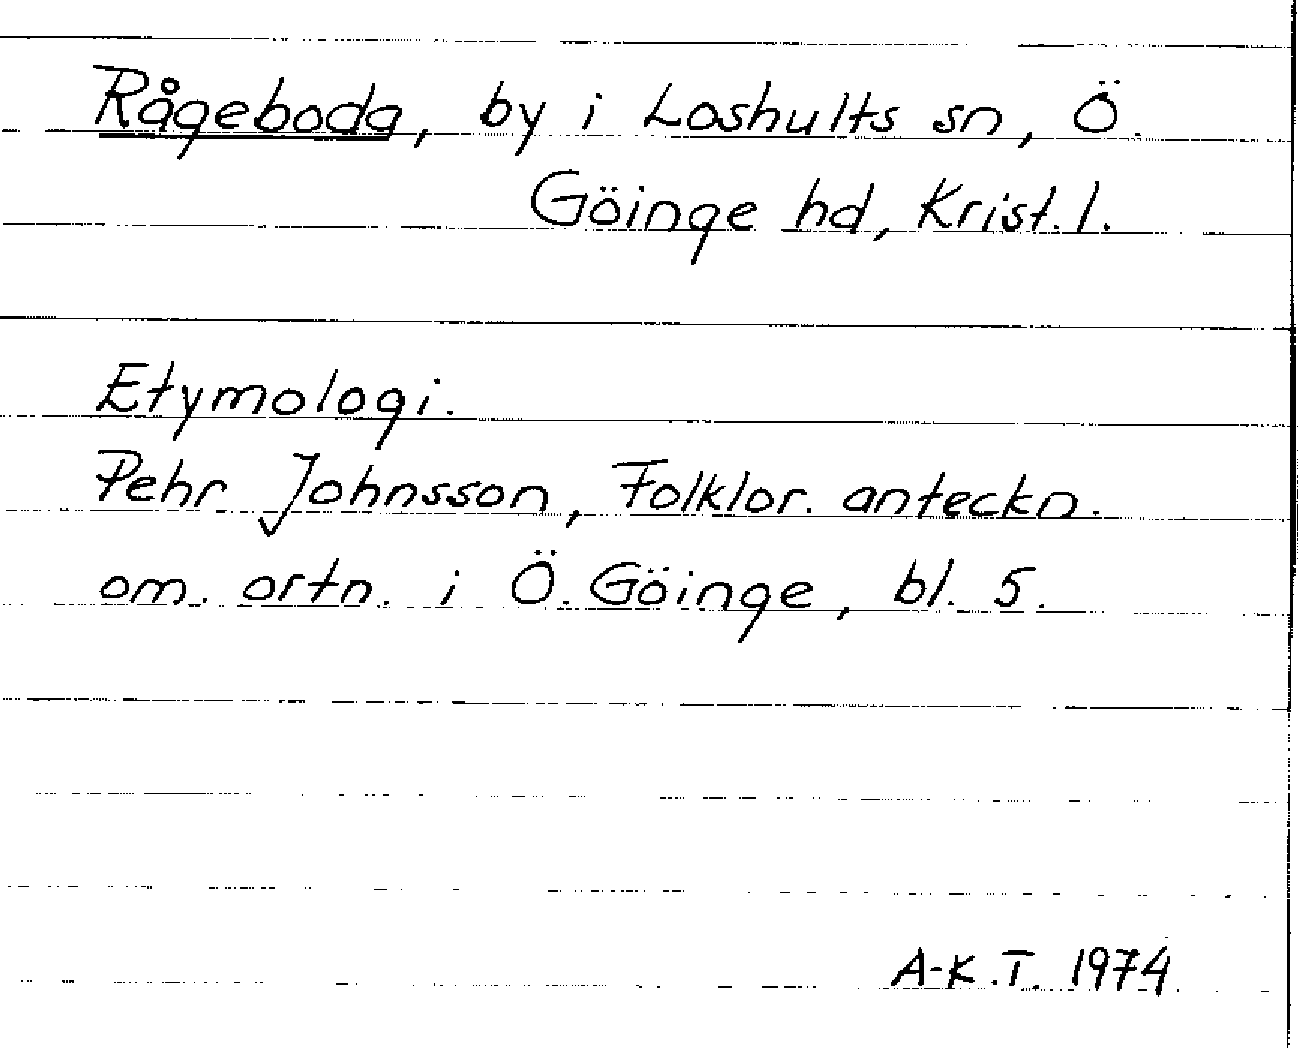 Rågeboda, by i Loshults sn, Ö.
Göinge hd, Krist. l.
Etymologi.
Pehr Johnsson, Folklor. anteckn.
om. ortn. i Ö. Göinge, bl. 5.
A-K.T. 1974